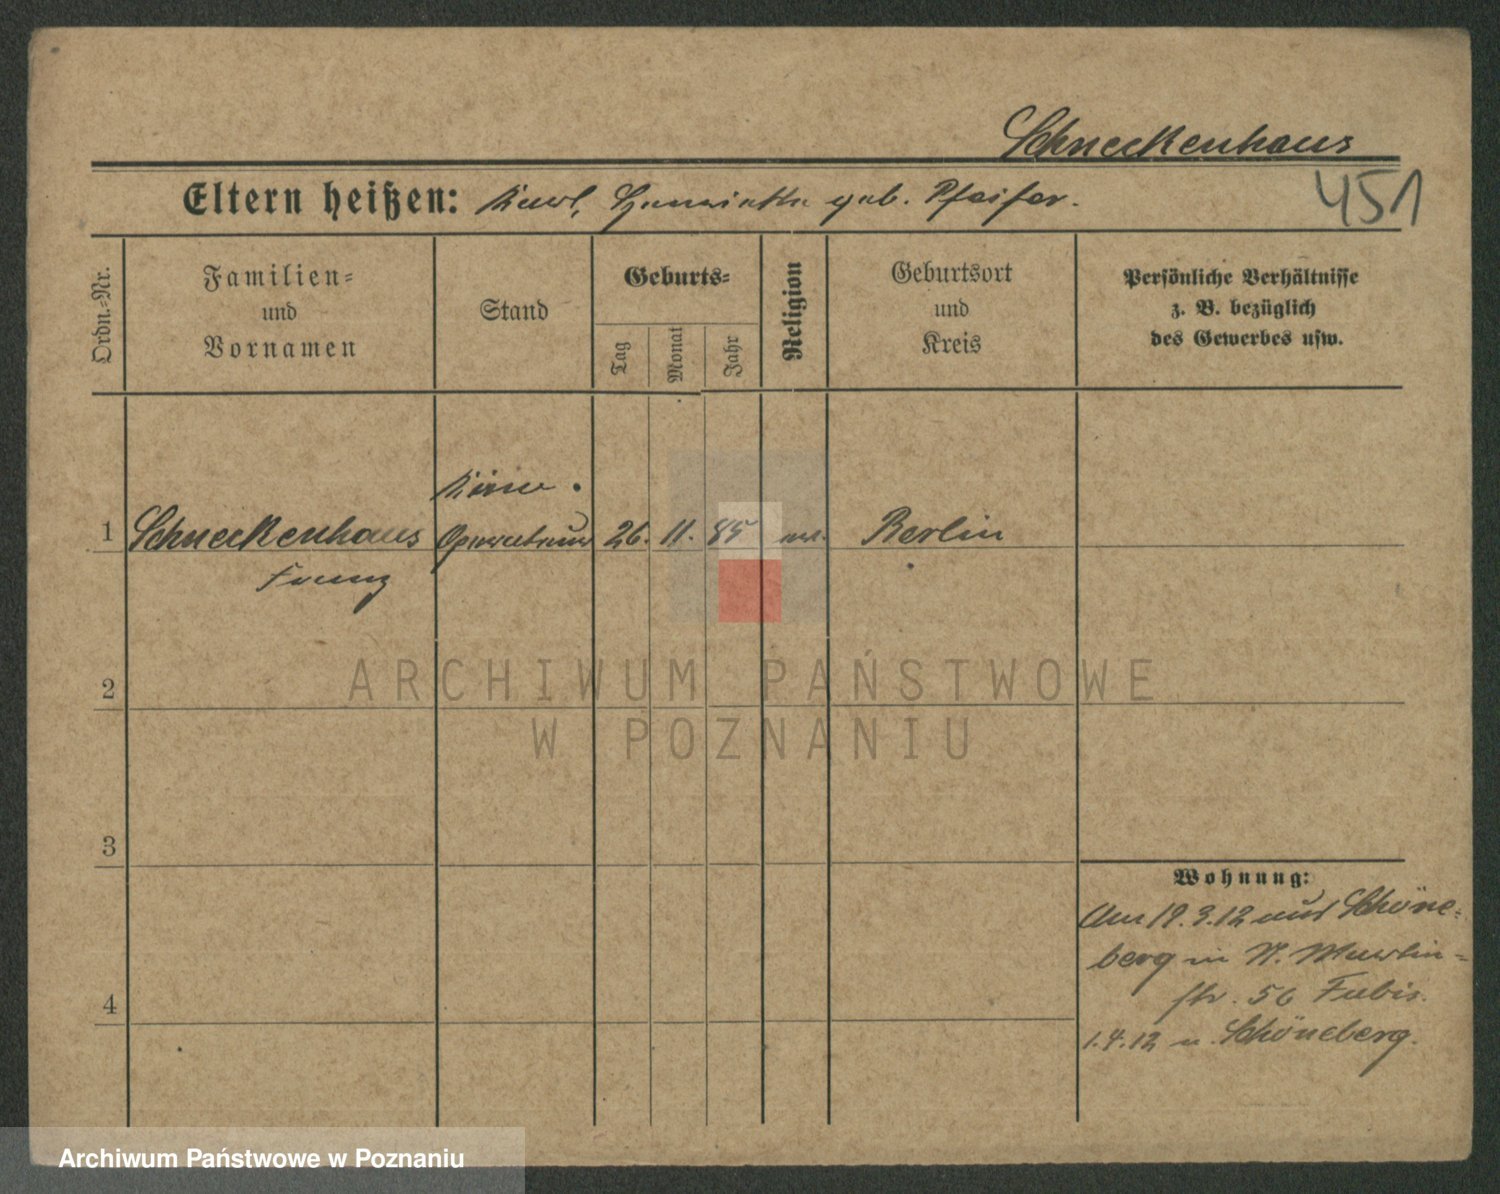 Schneckenhaus
Eltern heißen: Karl, Henriette geb. Pfeifer.
451
Ordn.-Nr.
Familien-
und
Vornamen
Stand
Geburts-
Tag
Monat
Jahr
Religion
Geburtsort
und
Kreis
Persönliche Verhältnisse
z. B. bezüglich
des Gewerbes usw.
1 Schneckenhaus Operateur 26. 11. 85 Berlin
Franz
2
3
4
Wohnung:
Am 19.3.12 aus Schöne-
berg in W. Martin-
str. 56
1.4.12 n. Schöneberg.
ARCHIWUM PAŃSTWOWE
W POZNANIU
Archiwum Państwowe w Poznaniu